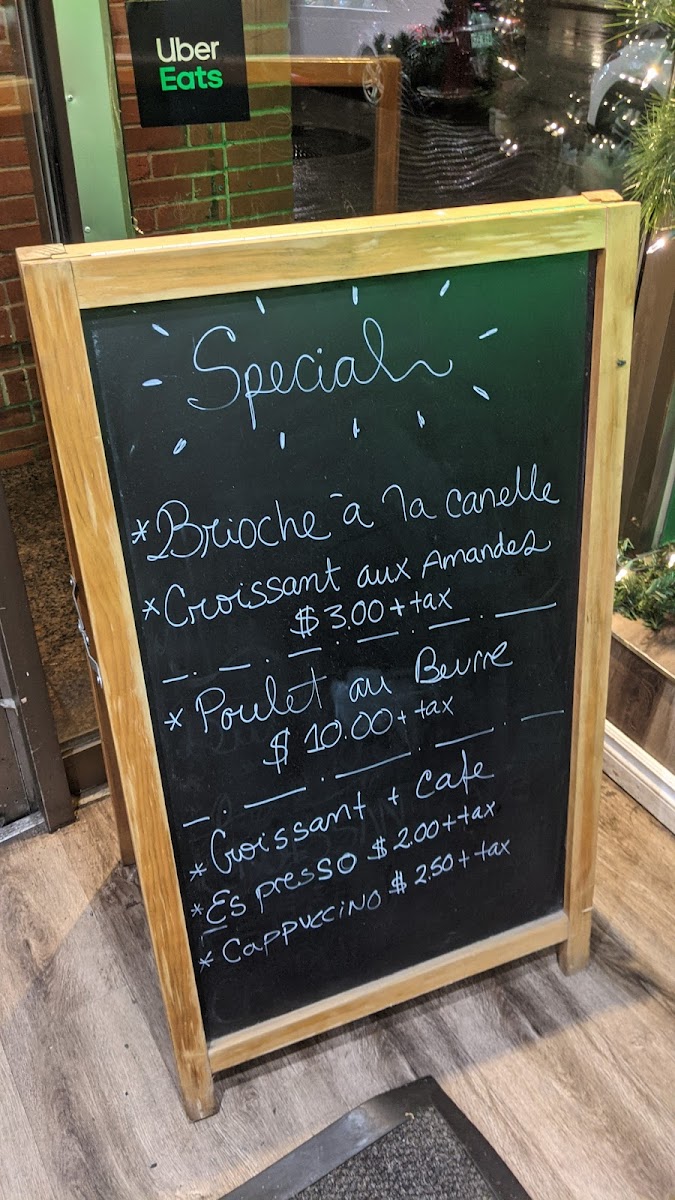 Uber
Eats
Special
*Brioche à la canelle
*Croissant aux Amandes
$3.00 + tax
* Poulet au Beurre
$10.00 + tax
*Croissant + Cafe
*Espresso $2.00 + tax
*Cappuccino $2.50 + tax